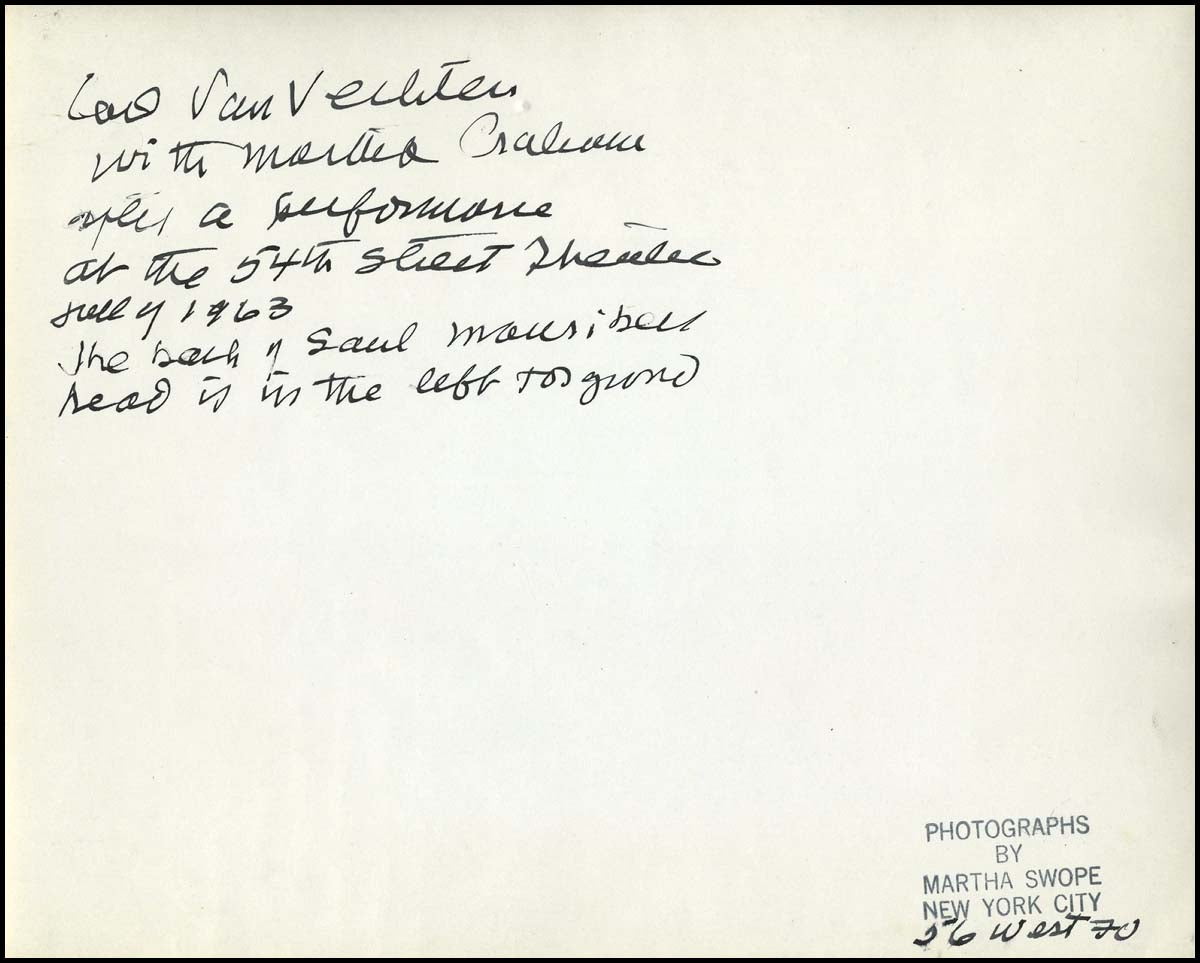 Carl Van Vechten
with Martha Graham
after a performance
at the 54th Street Theatre
1963
The back of Saul Mauriber
head is in the left forground
PHOTOGRAPHS
BY
MARTHA SWOPE
NEW YORK CITY
56 West 70